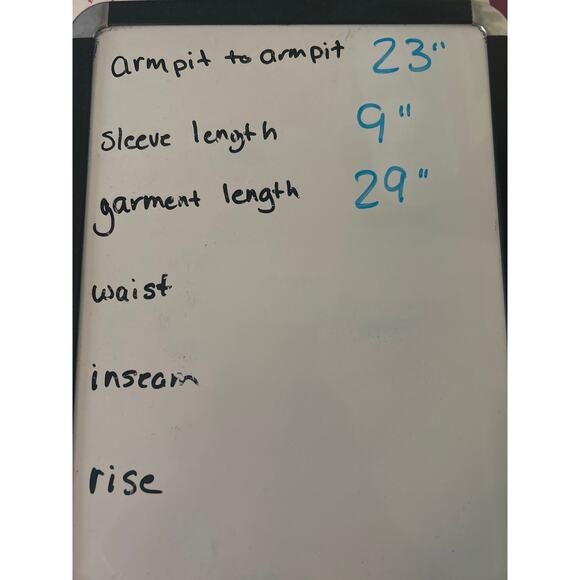 armpit to armpit 23"
sleeve length 9"
garment length 29"
waist
inseam
rise